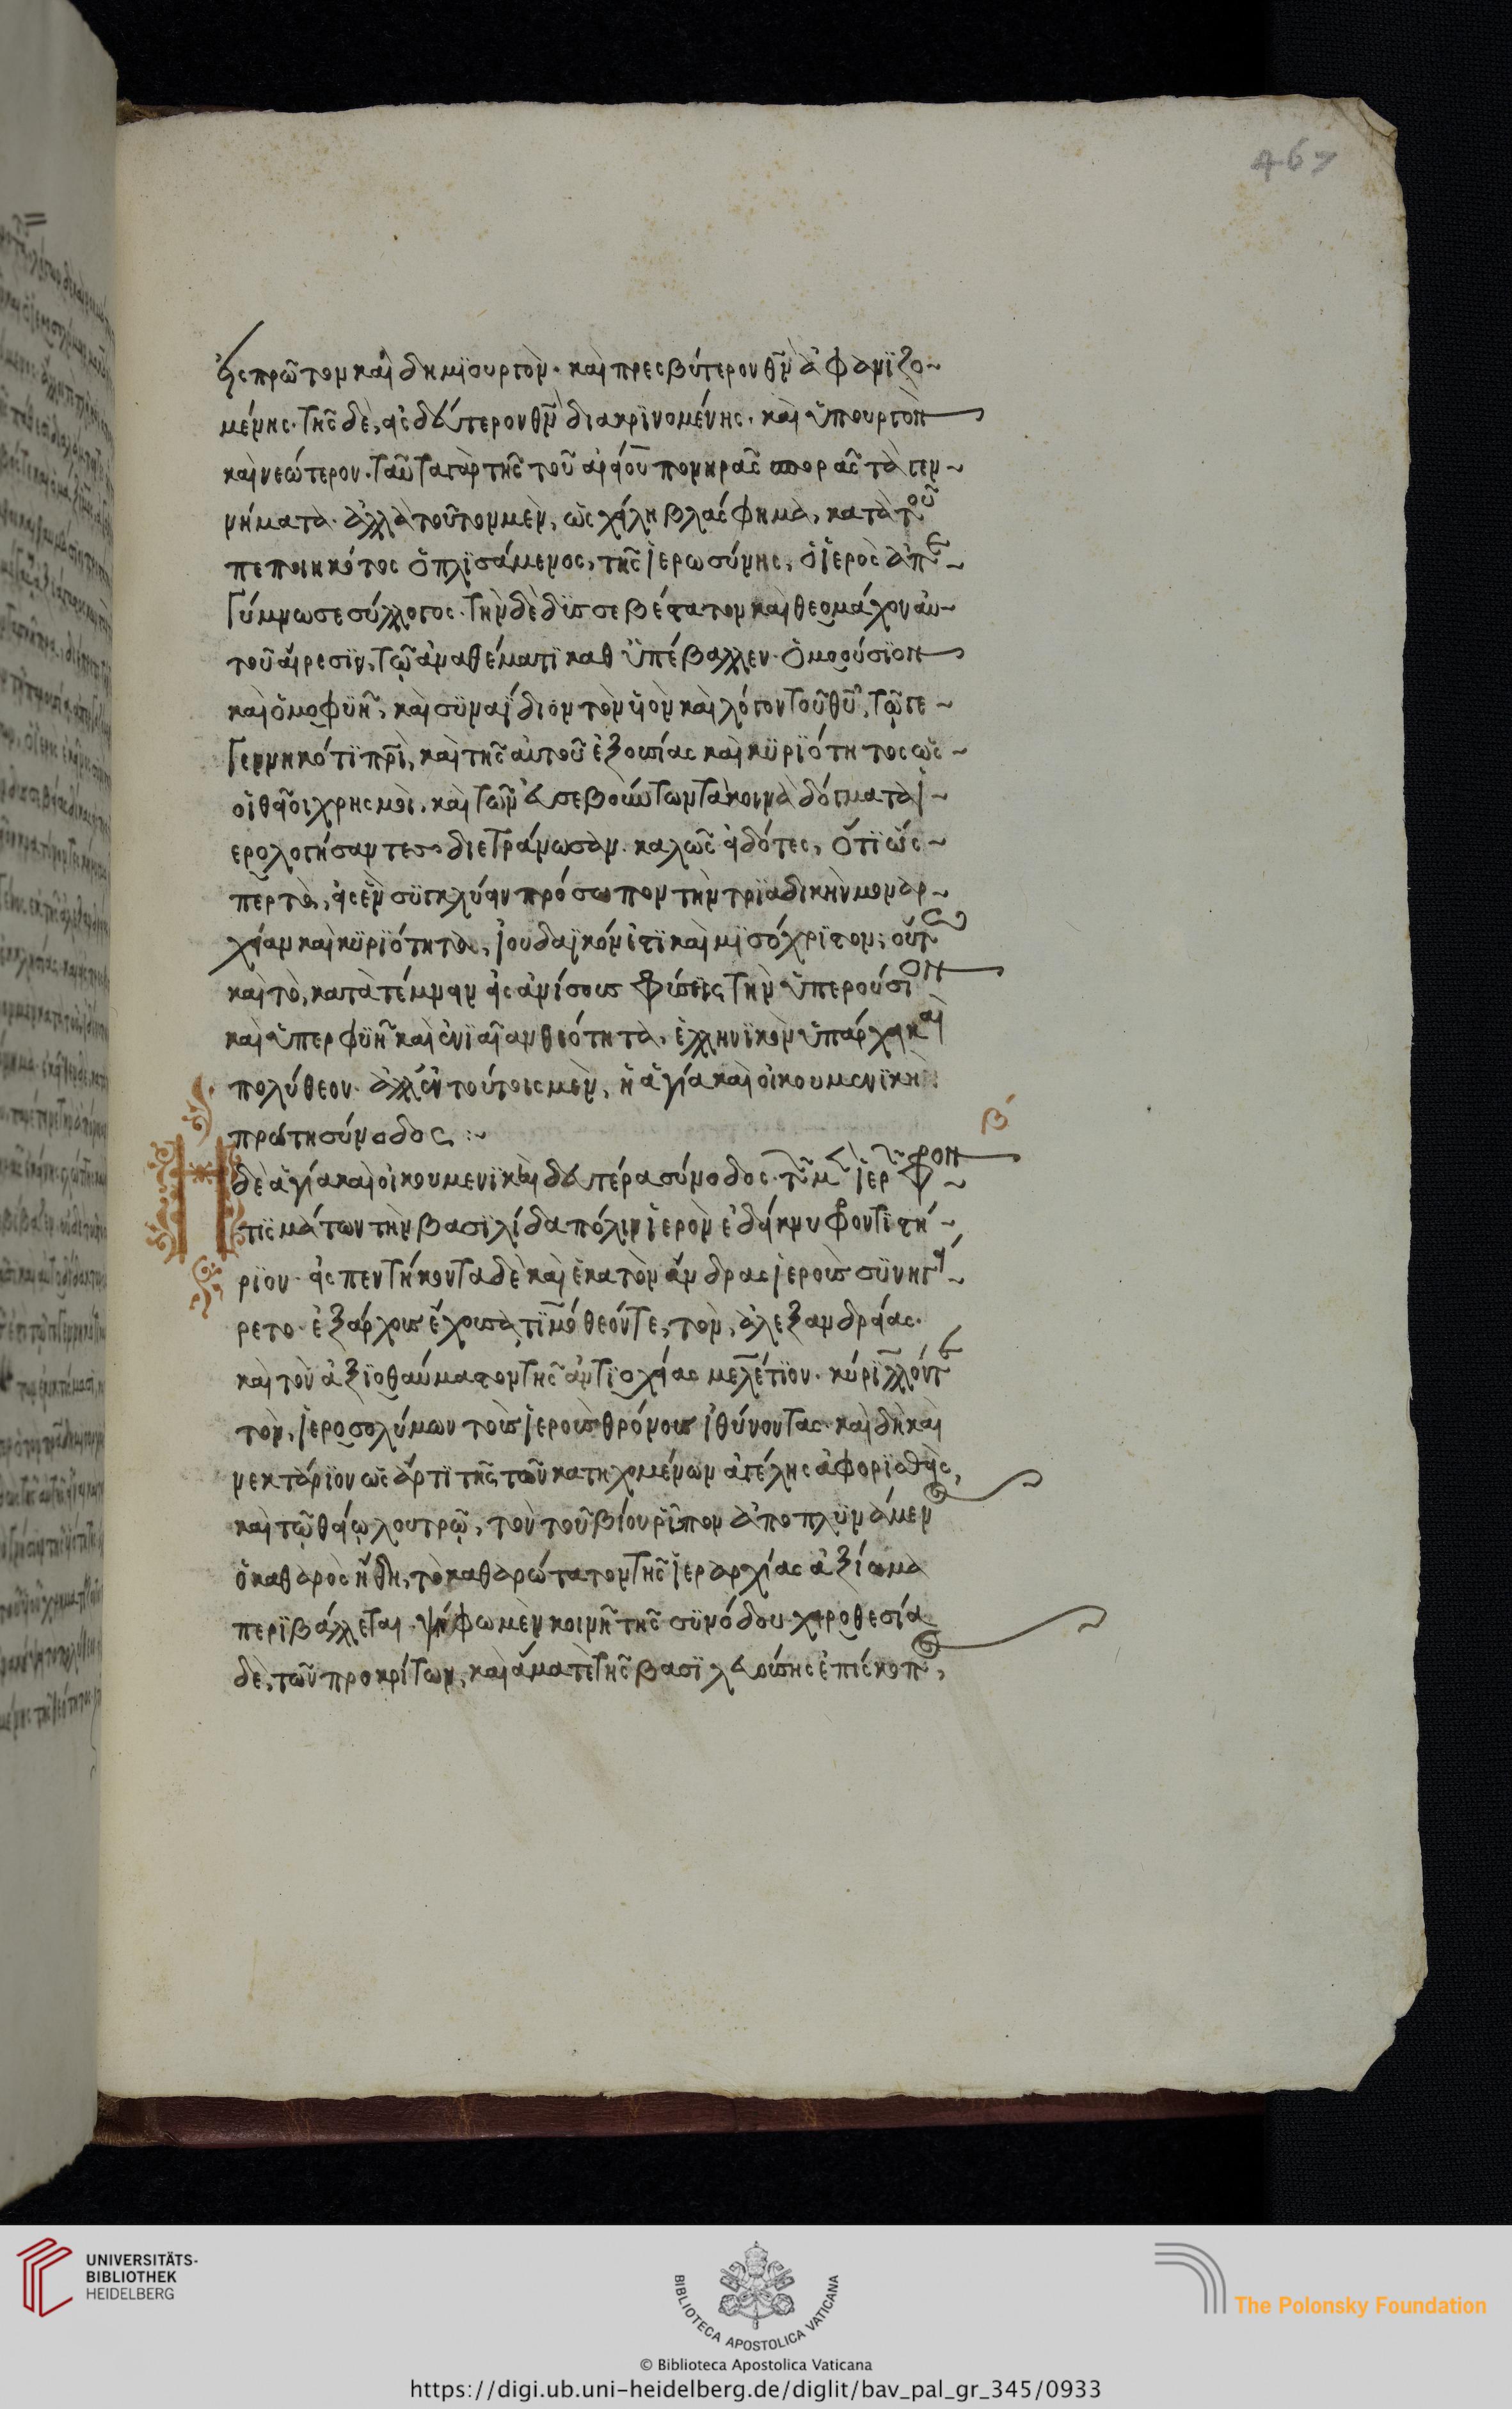 467
εἰς πρῶτον καὶ δημϊουργὸν· καὶ πρεσβύτερον θν̅ ἀφανϊζο-
μένης· τῆς δὲ, εἰς δεύτερον θν̅ διακρϊνομένης· καὶ ὑπουργὸν
καὶ νεώτερον· ταῦτα γὰρ τῆς τοῦ ἀρείου πονηρᾶς σπορᾶς τὰ γεν-
νήματα· ἀλλὰ τοῦτον μὲν, ὡς χείλη βλάσφημα, κατὰ τοῦ
πεποιηκότος ὁπλϊσάμενος, τῆς ἱερωσύνης, ὁ ἱερὸς ἀπε-
γύμνωσε σύλλογος· τὴν δὲ δϋσσεβέστατον καὶ θεομάχον αὐ-
τοῦ αἵρεσϊν, τῷ ἀναθέματϊ καθϋπέβαλλεν· ὁμοούσϊον
καὶ ὁμοφϋῆ, καὶ σϋναΐδιον τὸν υἱὸν καὶ λόγον τοῦ θυ̅, τῷ γε-
γεννηκότϊ πρι̅, καὶ τῆς αὐτοῦ ἐξουσίας καὶ κϋρϊότητος ὡς
οἱ θεῖοι χρησμοὶ, καὶ τῶν εὐσεβούντων τὰ κοινὰ δόγματα ἱ-
ερολογήσαντες διετράνωσαν· καλῶς εἰδότες, ὅτϊ ὥσ-
περ τὸ, εἰς ἓν σϋγκλύειν πρόσωπον τὴν τρϊαδικὴν μοναρ-
χίαν καὶ κϋρϊότητα, ἰουδαϊκόν ἐστϊ καὶ μϊσόχρϊστον; οὕτω
καὶ τὸ, κατατέμνειν εἰς ἀνίσους φύσεις τὴν ὑπερούσιον
καὶ ὑπερφϋῆ καὶ ἑνϊαίαν θεότητα, ἑλληνϊκὸν ὑπάρχει καὶ
πολύθεον· ἀλλ' ἐν τούτοις μὲν, ἡ ἁγία καὶ οἰκουμενϊκὴ
πρώτη σύνοδος :~
β´
Η δὲ ἁγία καὶ οἰκουμενϊκὴ δευτέρα σύνοδος· τῶν μὲν ἱερῶν φρον-
τϊσμάτων τὴν βασϊλίδα πόλιν ἱερὸν ἐδείκνυ φροντϊστή-
ρϊον· εἰς πεντήκοντα δὲ καὶ ἑκατὸν ἄνδρας ἱεροὺς σϋνηγεί-
ρετο· ἐξάρχους ἔχουσα, τϊμόθεόν τε, τὸν, ἀλεξανδρείας·
καὶ τὸν ἀξϊοθαύμαστον τῆς ἀντϊοχείας μελέτϊον· κύρϊλλόν τε
τὸν, ἱεροσολύμων τοὺς ἱεροὺς θρόνους ἰθύνοντας· καὶ δὴ καὶ
νεκτάρϊον ὡς ἄρτϊ τῆς τῶν κατηχομένων ἀγέλης ἀφορϊσθεὶς,
καὶ τῷ θείῳ λουτρῷ, τὸν τοῦ βίου ῥύπον ἀποπλϋνάμενος
ὁ καθαρὸς ἤδη, τὸ καθαρώτατον τῆς ἱεραρχίας ἀξίωμα
περϊβάλλεται· ψήφω μὲν κοινῆ τῆς σϋνόδου· χειροθεσία
δὲ, τῶν προκρίτων, καὶ ἅμα τὲ τῆς βασϊλευούσης ἐπίσκοπος,
UNIVERSITÄTS-
BIBLIOTHEK
HEIDELBERG
BIBLIOTECA APOSTOLICA VATICANA
The Polonsky Foundation
© Biblioteca Apostolica Vaticana
https://digi.ub.uni-heidelberg.de/diglit/bav_pal_gr_345/0933